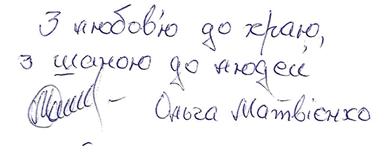 З любов'ю до краю,
з шаною до людей
– Ольга Матвієнко